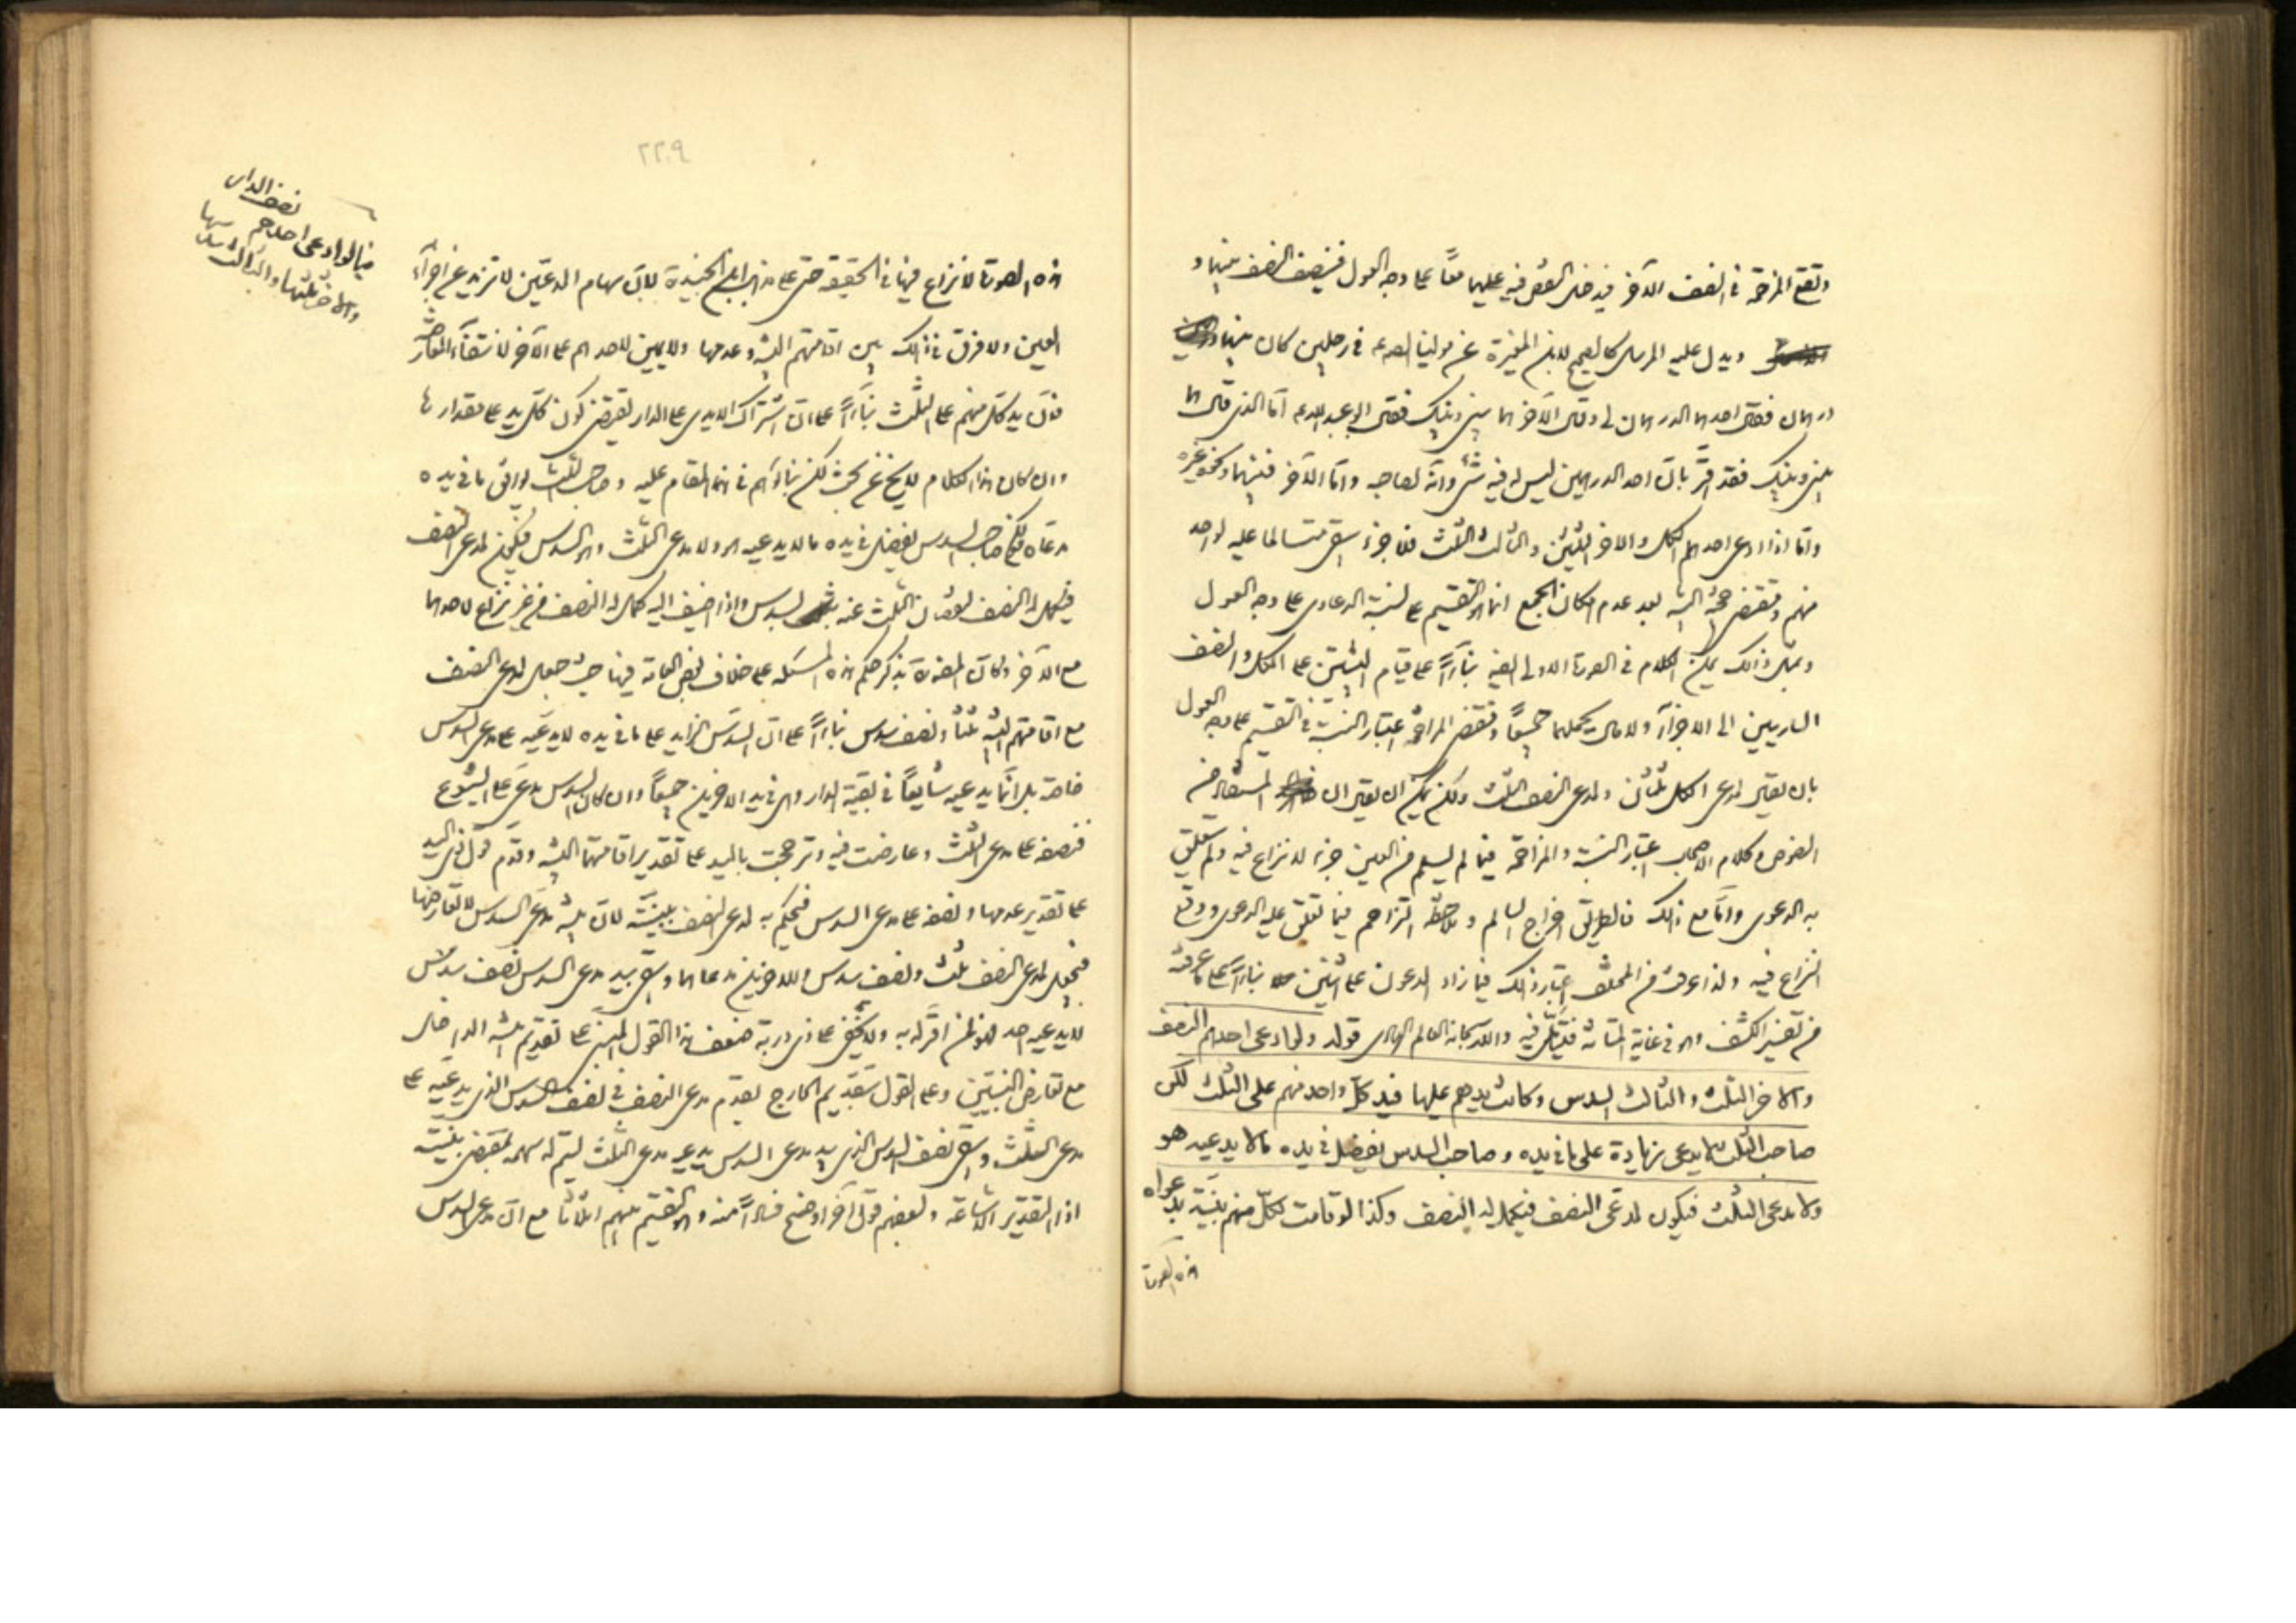 وتقع المزاحمة في النصف الآخر فيدخل النقص فيه عليهما معًا على وجه العول فينصف النصف بينهما و
ويدل عليه المرسل كالصحيح لابن المغيرة عن مولينا الصـ عـ في رجلين كان بينهما
درهمان فقال احدهما الدرهمان لي وقال الآخر هما بيني وبينك فقال ابو عبد الله عـ اما الذي قال هما
بيني وبينك فقد اقرّ بان احد الدرهمين ليس له فيه شئ وانه لصاحبه واما الآخر فبينهما ونحوه غيره
واما اذا ادعى احدهم الكل والاخر الثلثين والثالث الثلث فلا جزء يبقى سالما عليه لواحد
منهم ومقتضى حجية البينة بعد عدم امكان الجمع انما هو التقسيم على نسبة الدعاوى على وجه العول
وبمثل ذلك يمكن الكلام في الصورة الاولى ايضا بناءً على قيام البينتين على الكل والنصف
الساريين الى الاجزاء ولا مال يحملهما جميعًا ومقتضى المزاحمة اعتبار النسبة في التقسيم على وجه العول
بان يعتبر لمدعى الكل ثلثان ولمدعى النصف الثلث ولكن يمكن ان يقال ان المستفاد من
النصوص وكلام الاصحاب اعتبار النسبة والمزاحمة فيما لم يسلم من العين جزء لا نزاع فيه ولم يتعلق
به الدعوى واما مع ذلك فالطريق اخراج السالم وملاحظة التزاحم فيما تعلق عليه الدعوى ووقع
النزاع فيه ولذا عرفت من المختلف اعتبار ذلك فيما زاد المدعون على اثنين بناءً على ما عرفته
من تفسير الكشف وهو في غاية المتانة فليتأمل فيه والله سبحانه العالم الهادى قوله ولو ادعى احدهم النصف
والاخر الثلث والثالث السدس وكانت يدهم عليها فيد كلّ واحد منهم على الثلث لكن
صاحب الثلث لا يدعى زيادة على ما في يده وصاحب السدس يفضل في يده ما لا يدعيه هو
ولا مدعى الثلث فيكون لمدعى النصف فيكمل له النصف وكذا لو قامت لكلّ منهم بينة بدعواه
هذه الصورة
٢٢٩
هذه الصورة لا نزاع فيها في الحقيقة حتى على مذهب ابن الجنيد لان سهام المدعين لا تزيد عن اجزاء
العين ولا فرق في ذلك بين اقامتهم البينة وعدمها ولا يمين لاحدهم على الآخر لانتفاء المعارضة
فان يد كل منهم على الثلث بناءً على ان اشتراك الايدى على الدار يقتضى كون كل يد على مقدارها
وان كان هذا الكلام لا يخ عن بحث لكن بناؤهم في هذا المقام عليه وصاحب الثلث يوافق ما في يده
مدعاه ولكن صاحب السدس يفضل في يده ما لا يدعيه هو ولا مدعى الثلث وهو السدس فيكون لمدعى النصف
فيكمل له النصف لنقصان الثلث عنه بسدس واذا ضيف اليه كمل له النصف من غير نزاع لاحدهما
مع الآخر وكان المص ره بذكر حكم هذه المسئلة على خلاف بعض العامة فيها حيث جعل لمدعى النصف
مع اقامتهم البينة ثلثًا ونصف سدس بناءً على ان السدس الزايد على ما في يده لا يدعيه على مدعى السدس
خاصة بل انما يدعيه شايعًا في بقية الدار وهى في يد الاخرين جميعًا وان كان السدس مدعى على الشيوع
فنصفه على مدعى الثلث وعارضت فيه وترجحت باليد على تقدير اقامتهما البينة وقدم قول ذى اليد
على تقدير عدمها ونصفه على مدعى السدس فيحكم به لمدعى النصف ببينته لان بينة مدعى السدس لا تعارضها
فيحصل لمدعى النصف ثلث ونصف سدس وللاخرين مدعاهما ويبقى بيد مدعى السدس نصف سدس
لا يدعيه احد فهو لمن اقر له به ولا يخفى على ذى دربة ضعف هذا القول المبنى على تقديم بينة الداخل
مع تعارض البينتين وعلى القول بتقديم الخارج يقدم مدعى النصف في نصف السدس الذى يدعيه على
مدعى الثلث ويبقى نصف السدس الذى بيد مدعى السدس يدعيه مدعى الثلث ليتم له سهمه بمقتضى بينته
اذ التقدير الاشاعة ولبعضهم قول آخر اوضح فسادًا منه وهو التقسيم بينهم اثلاثا مع ان مدعى السدس
فيما لو ادعى احدهم
نصف الدار
والاخر ثلثها والثالث سدسها